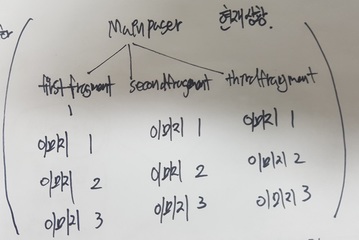 Mainpager 현재상황.
firstfragment secondfragment thirdfragment
이미지 1 이미지 1 이미지 1
이미지 2 이미지 2 이미지 2
이미지 3 이미지 3 이미지 3